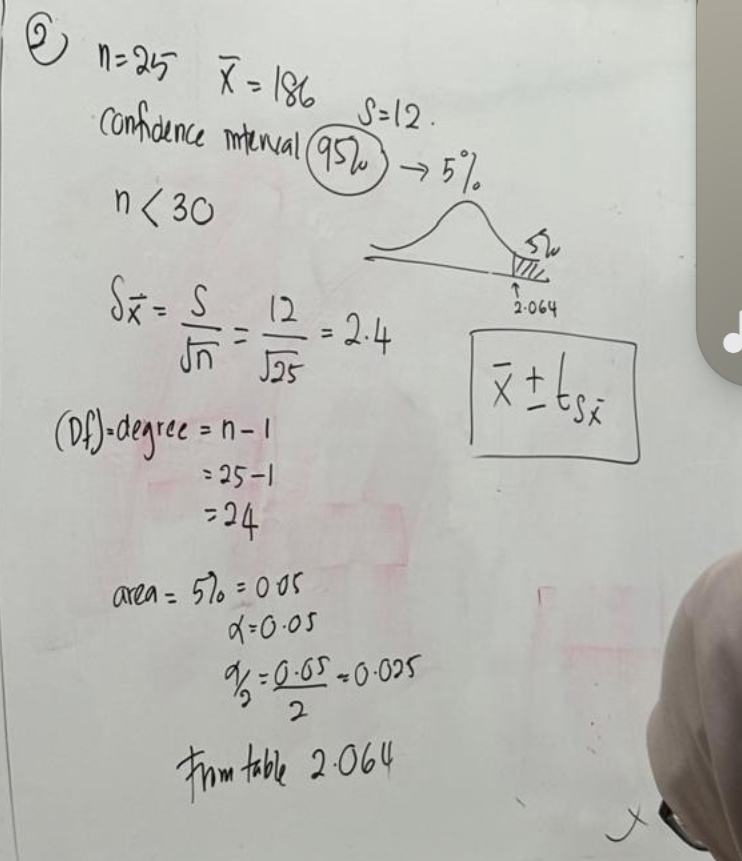 ②
n=25 x̄ = 186 S=12.
Confidence interval 95% → 5%
n < 30
5%
2.064
Sx̄ = S/√n = 12/√25 = 2.4
x̄ ± tSx̄
(Df)=degree = n-1
= 25-1
= 24
area = 5% = 0.05
α=0.05
α/2 = 0.05/2 = 0.025
From table 2.064